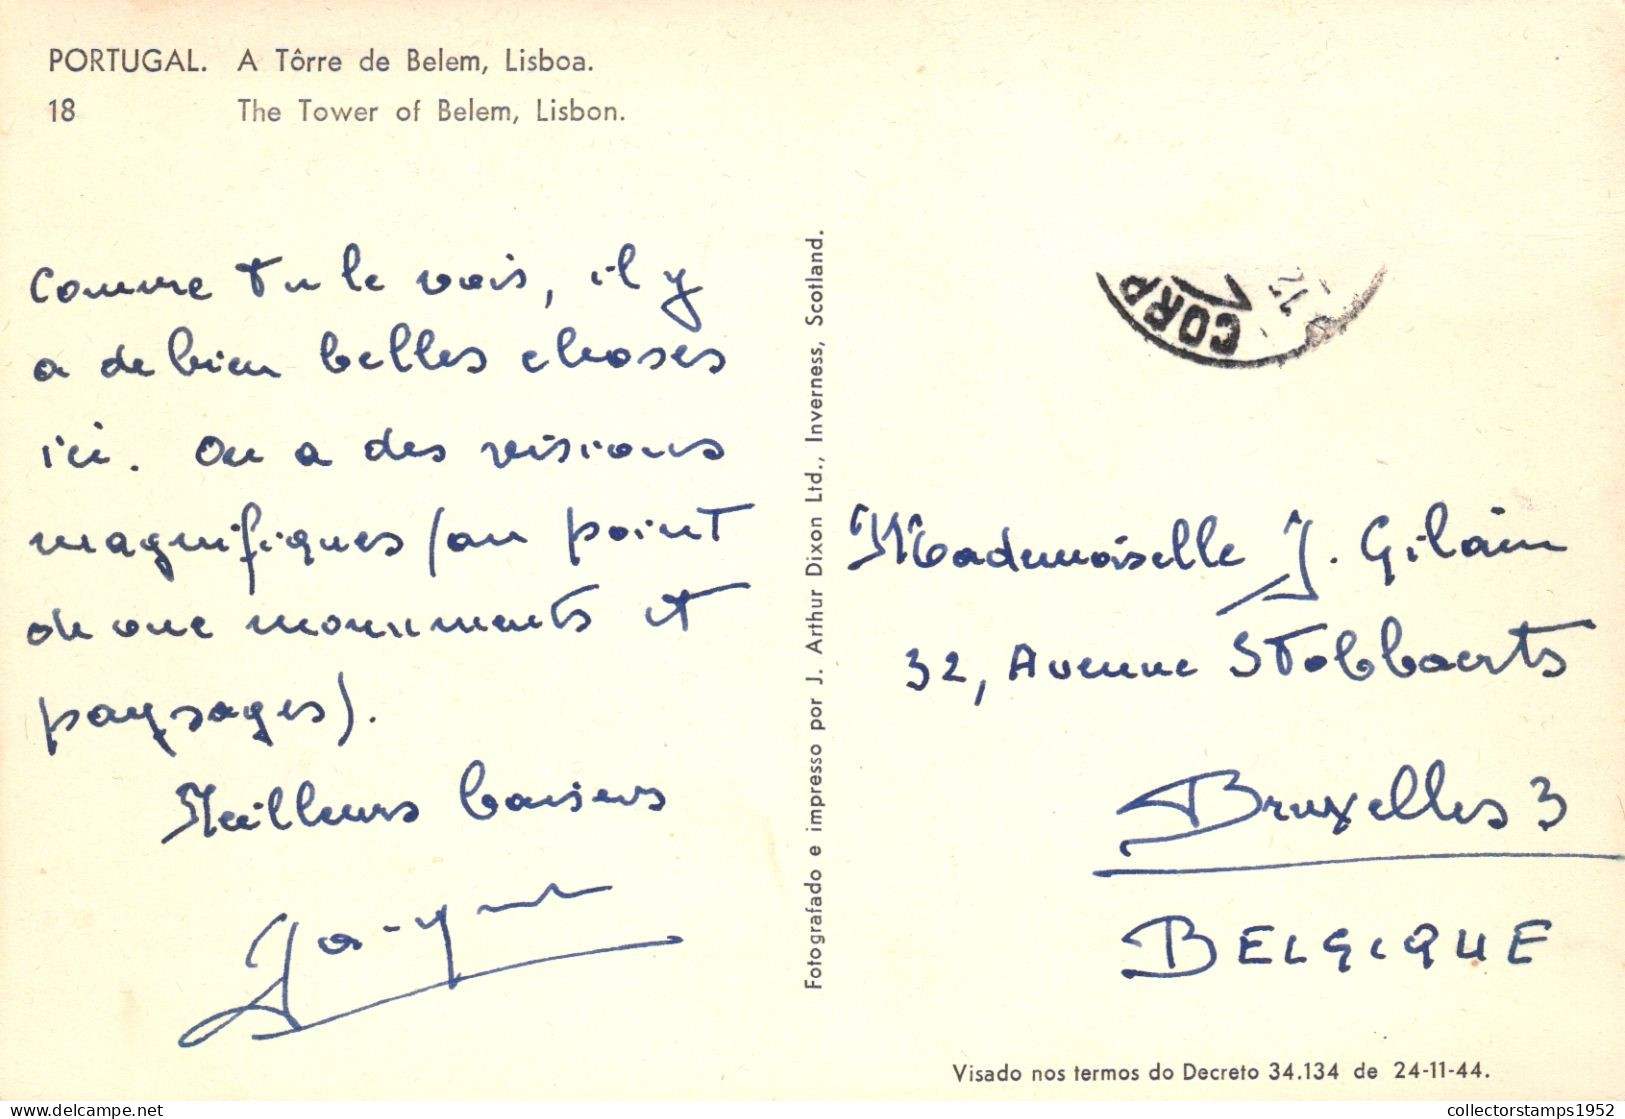 PORTUGAL. A Tôrre de Belem, Lisboa.
18 The Tower of Belem, Lisbon.
Comme tu le vois, il y
a de bien belles choses
ici. On a des visions
magnifiques (au point
de vue monuments et
paysages).
Meilleurs baisers
Fotografado e impresso por J. Arthur Dixon Ltd., Inverness, Scotland.
CORR
Mademoiselle J. Gilain
32, Avenue Stobbaerts
Bruxelles 3
BELGIQUE
Visado nos termos do Decreto 34.134 de 24-11-44.
collectorstamps1952